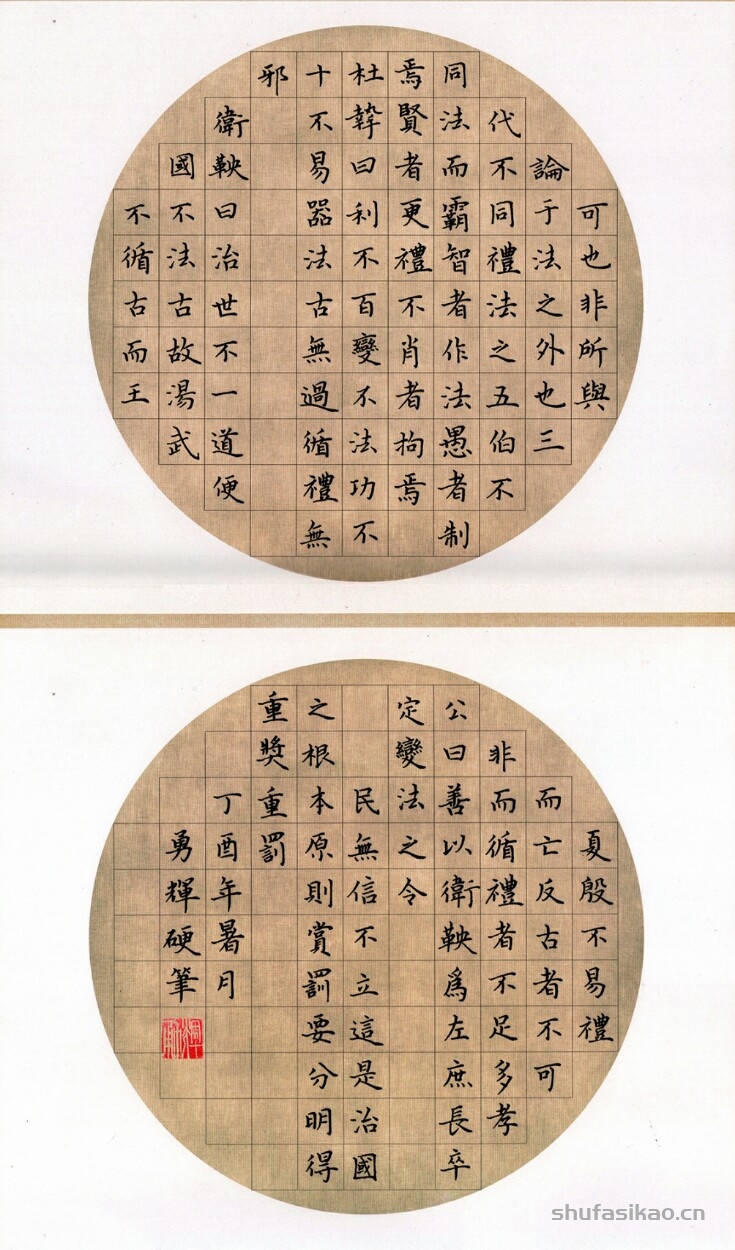 可也非所與
論于法之外也三
代不同禮法之五伯不
同法而霸智者作法愚者制
焉賢者更禮不肖者拘焉
杜摯曰利不百變不法功不
十不易器法古無過循禮無
邪
衛鞅曰治世不一道便
國不法古故湯武
不循古而王
夏殷不易禮
而亡反古者不可
非而循禮者不足多孝
公曰善以衛鞅為左庶長卒
定變法之令
民無信不立這是治國
之根本原則賞罰要分明得
重獎重罰
丁酉年暑月
勇輝硬筆
shufasikao.cn